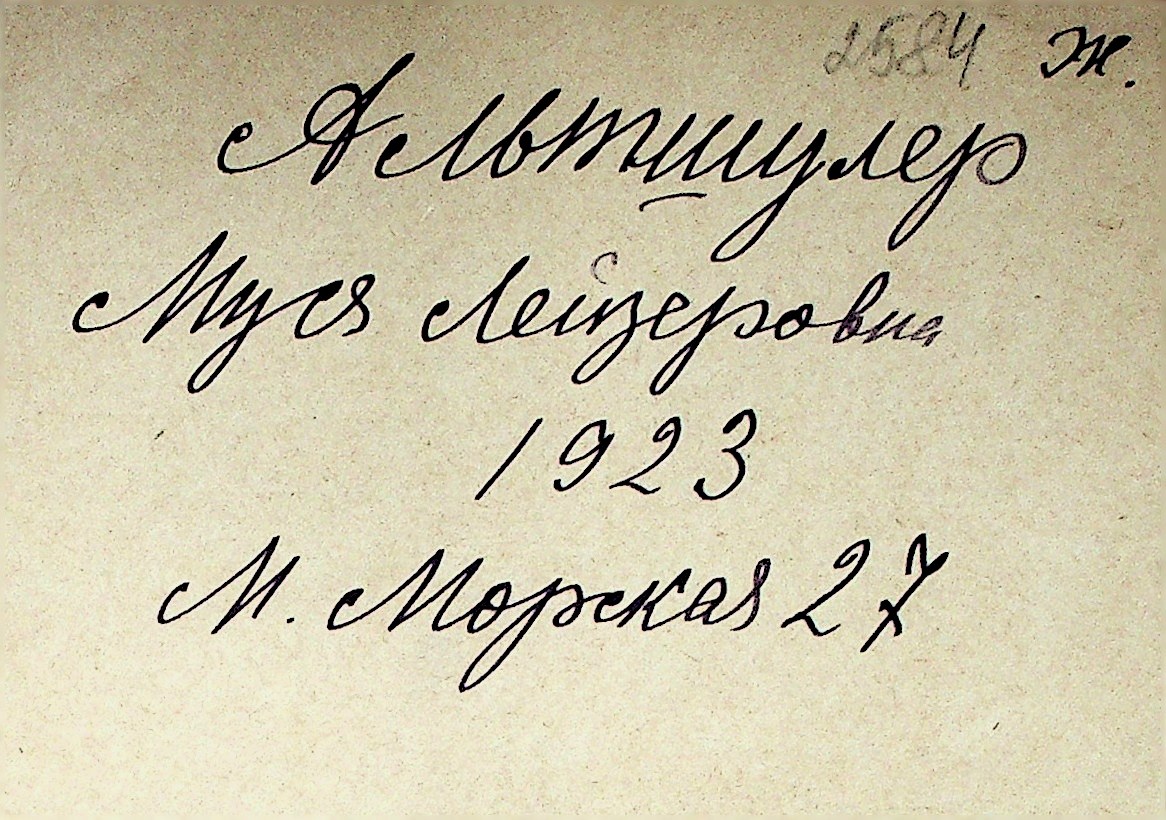 2584 ж.
Альтшулер
Муся Лейзеровна
1923
М. Морская 27